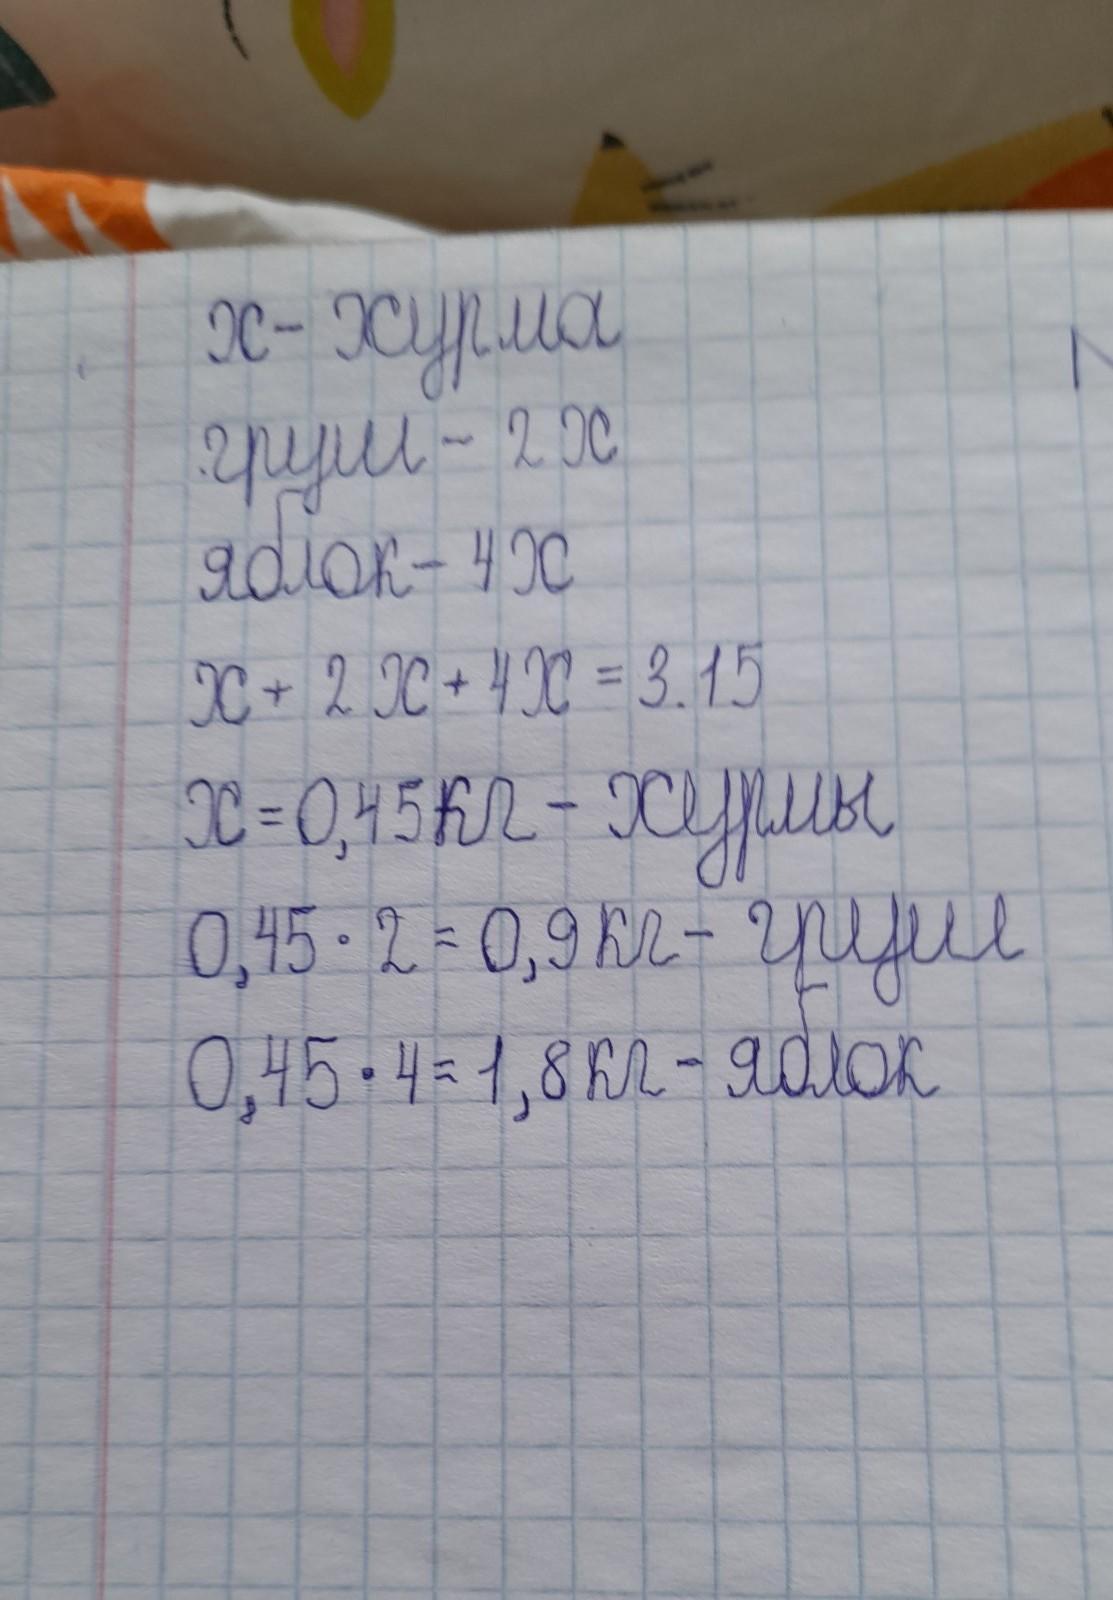 х- хурма
груш - 2х
яблок - 4х
х + 2х + 4х = 3.15
х = 0,45кг - хурмы
0,45 · 2 = 0,9кг - груш
0,45 · 4 = 1,8кг - яблок